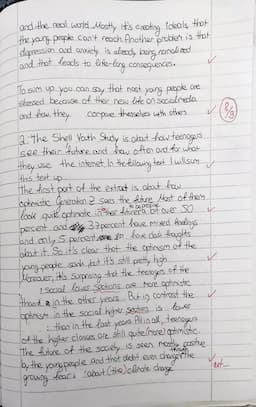 and the real world. Mostly it's creating Ideals that
the young people can't reach. Another problem is that
depression and anxiety is already being normalized
and that leads to life-long consequences.
To sum up you can say that most young people are
stressed because of their new life on social media
and how they compare themselves with others.
8/8
2. The Shell Youth Study is about how teenagers
see their future and how often and for what
they use the internet. In the following text I will sum
this text up.
The first part of the extract is about how
optimistic Generation Z sees the future. Most of them
look quite optimistic in their future
to be precise
percent and 37 percent have mixed feelings
and only 5 percent have dark thoughts
about it. So it's clear that the optimism of the
young people sank but it's still pretty high.
Moreover, it's surprising that the teenagers of the
social lower sections are more optimistic
in the other years. But in contrast the
optimism in the social higher sections is lower
than in the last years. All in all, teenagers
of the higher classes are still quite (more) optimistic.
The future of the society is seen mostly positive
by the young people. And that didn't even change the
growing fear about (the) climate change